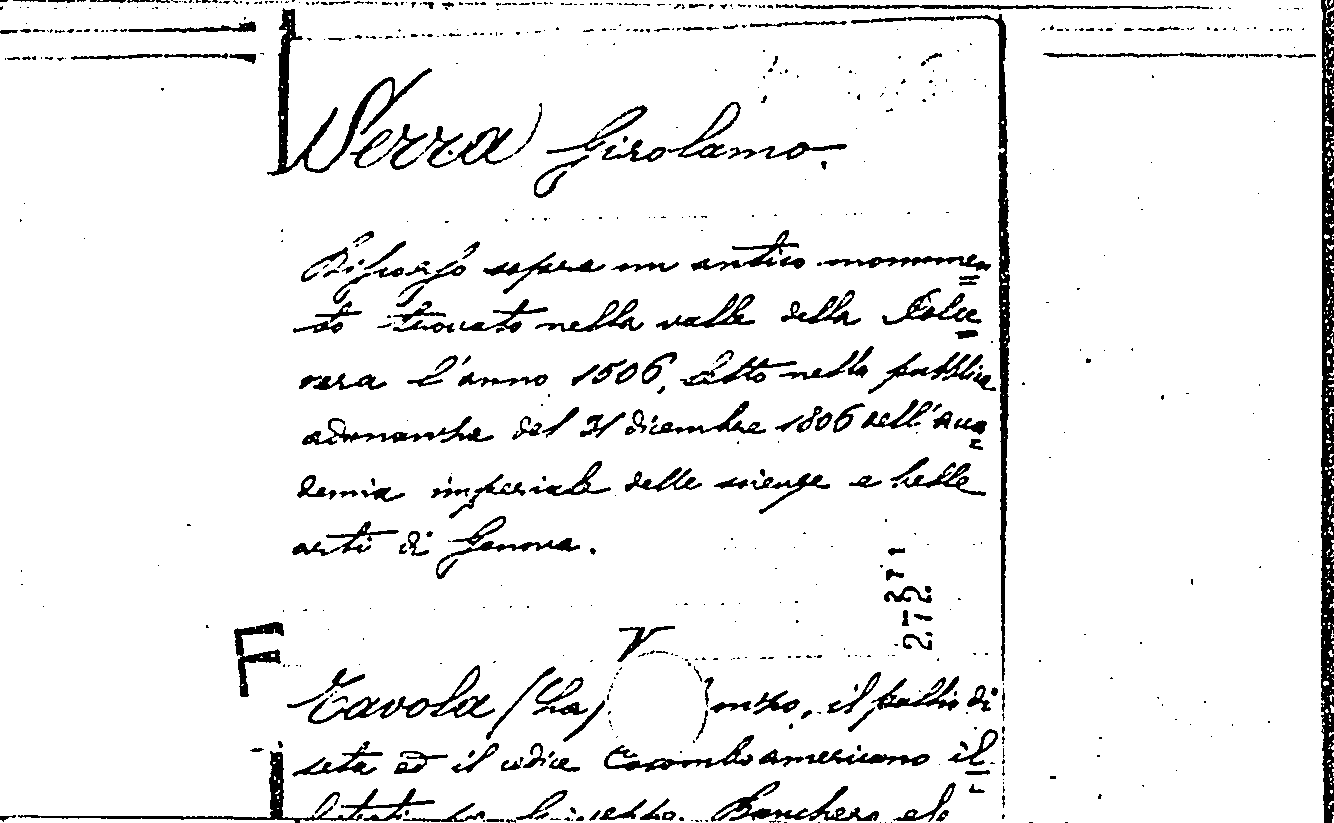 Serra Girolamo.
Discorso sopra un antico monumen=
to trovato nella valle della Polce=
vera l'anno 1506, letto nella pubblica
adunanza del 31 dicembre 1806 dell'Acca=
demia imperiale delle scienze e belle
arti di Genova.
271
272
F
V
Tavola (La) bronzo, il pallio di
seta ed il codice Colomboamericano il=
lustrati da Giuseppe Banchero